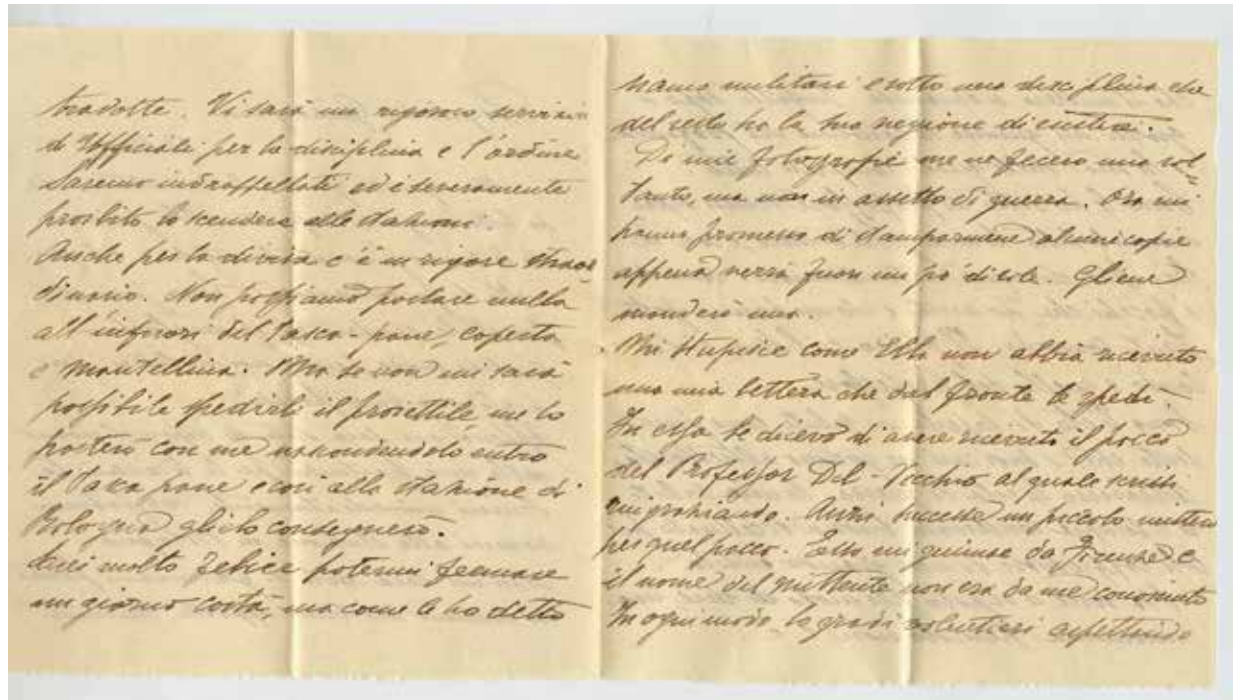 tradotte. Vi sarà un rigoroso servizio
di Ufficiali per la disciplina e l'ordine
Saremo indrappellati ed è severamente
proibito lo scendere alle stazioni.
Anche per la divisa c'è un rigore straor
dinario. Non possiamo portare nulla
all'infuori del tasca-pane, coperta
e mantellina. Ma se non mi sarà
possibile spedirle il proiettile, me lo
porterò con me nascondendolo entro
il tasca pane e così alla stazione di
Bologna glielo consegnerò.
Sarei molto felice potermi fermare
un giorno costà, ma come le ho detto
siamo militari e sotto una disciplina che
del resto ha la sua ragione di esistere.
Di mie fotografie me ne fecero una sol
tanto, ma non in assetto di guerra. Ora mi
hanno promesso di stamparmene alcune copie
appena verrà fuori un pò di sole. Gliene
manderò una.
Mi stupisce come Ella non abbia ricevuto
una mia lettera che dal fronte le spedì.
In essa le dicevo di avere ricevuto il pacco
del Professor Del-Vecchio al quale scrissi
ringraziando. Anzi successe un piccolo mistero
per quel pacco. Esso mi giunse da Firenze e
il nome del mittente non era da me conosciuto
In ogni modo lo gradì volentieri aspettando